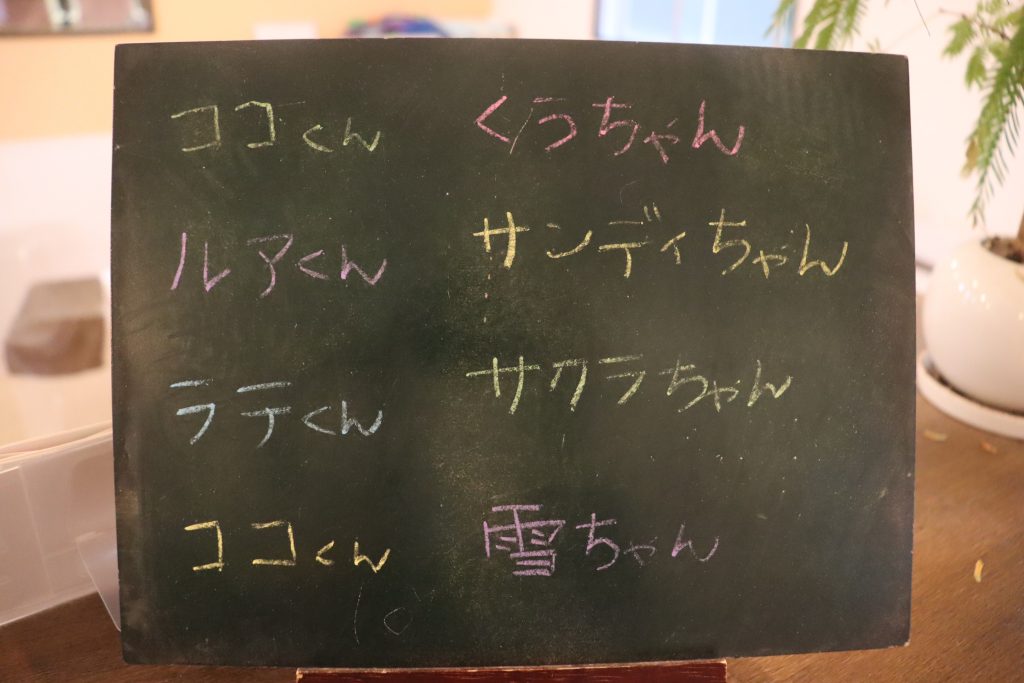 ココくん くうちゃん
ルアくん サンディちゃん
ラテくん サクラちゃん
ココくん 雪ちゃん